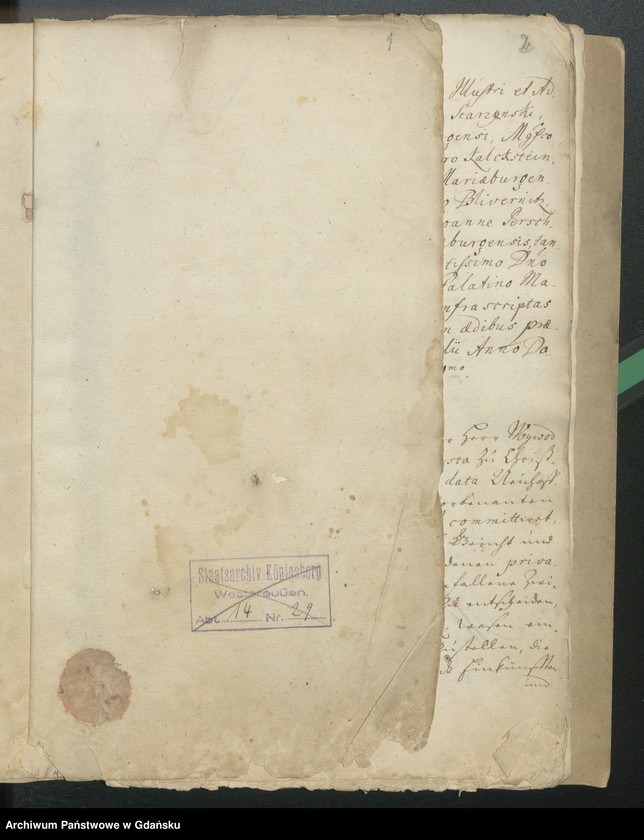 1
2
Illustri et Ad
Scarzenski,
gensi, Mgfco
ro Kalckstein,
Mariæburgen
o Blivernitz
oanne Persch
æburgensis, tan
tissimo Dno
Palatino Ma-
nfrascriptas
n ædibus præ-
lii Anno Do
mo.
r Herr Woywod
sta zu Christ-
data
committiret,
Bericht und
denen priva
entscheiden,
Wesen
zustellen, die
und
Staatsarchiv Königsberg
Westpreußen.
Abt. 14 Nr. 29
Archiwum Państwowe w Gdańsku